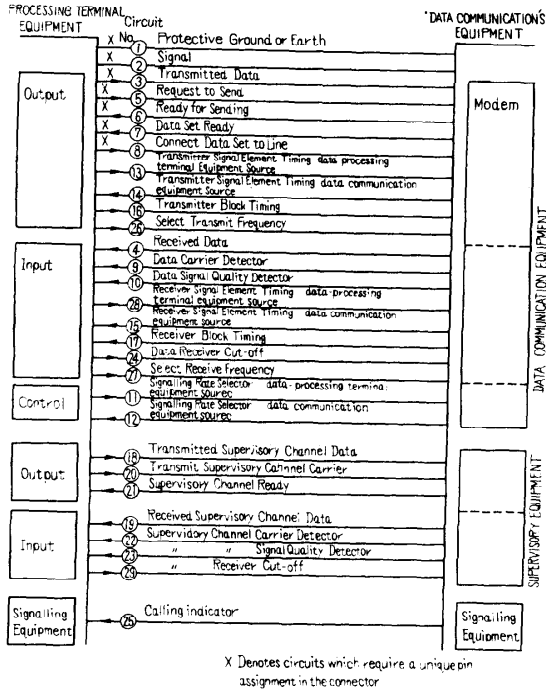 PROCESSING TERMINAL EQUIPMENT
Circuit No.
DATA COMMUNICATION'S EQUIPMENT
X 1 Protective Ground or Earth
X 2 Signal
X 3 Transmitted Data
X 5 Request to Send
X 6 Ready for Sending
X 7 Data Set Ready
X 8 Connect Data Set to Line
Transmitter Signal Element Timing data processing
13 terminal Equipment Source
Transmitter Signal Element Timing data communication
14 equipment Source
16 Transmitter Block Timing
26 Select Transmit Frequency
4 Received Data
9 Data Carrier Detector
10 Data Signal Quality Detector
Receiver Signal Element Timing data-processing
28 terminal equipment source
Receiver Signal Element Timing data communication
15 equipment source
17 Receiver Block Timing
24 Data Receiver Cut-off
27 Select Receive Frequency
Signalling Rate Selector data-processing terminal
11 equipment sourec
Signalling Rate Selector data communication
12 equipment sourec
18 Transmitted Supervisory Channel Data
20 Transmit Supervisory Cahnnel Carrier
21 Supervisory Channel Ready
19 Received Supervisory Channel Data
22 Supervidory Channel Carrier Detector
23 " " Signal Quality Detector
29 " Receiver Cut-off
25 Calling indicator
Output
Input
Control
Output
Input
Signalling
Equipment
Modem
DATA COMMUNICATION EQUIPMENT
SUPERVISORY EQUIPMENT
Signalling
Equipment
X Denotes circuits which require a unique pin
assignment in the connector